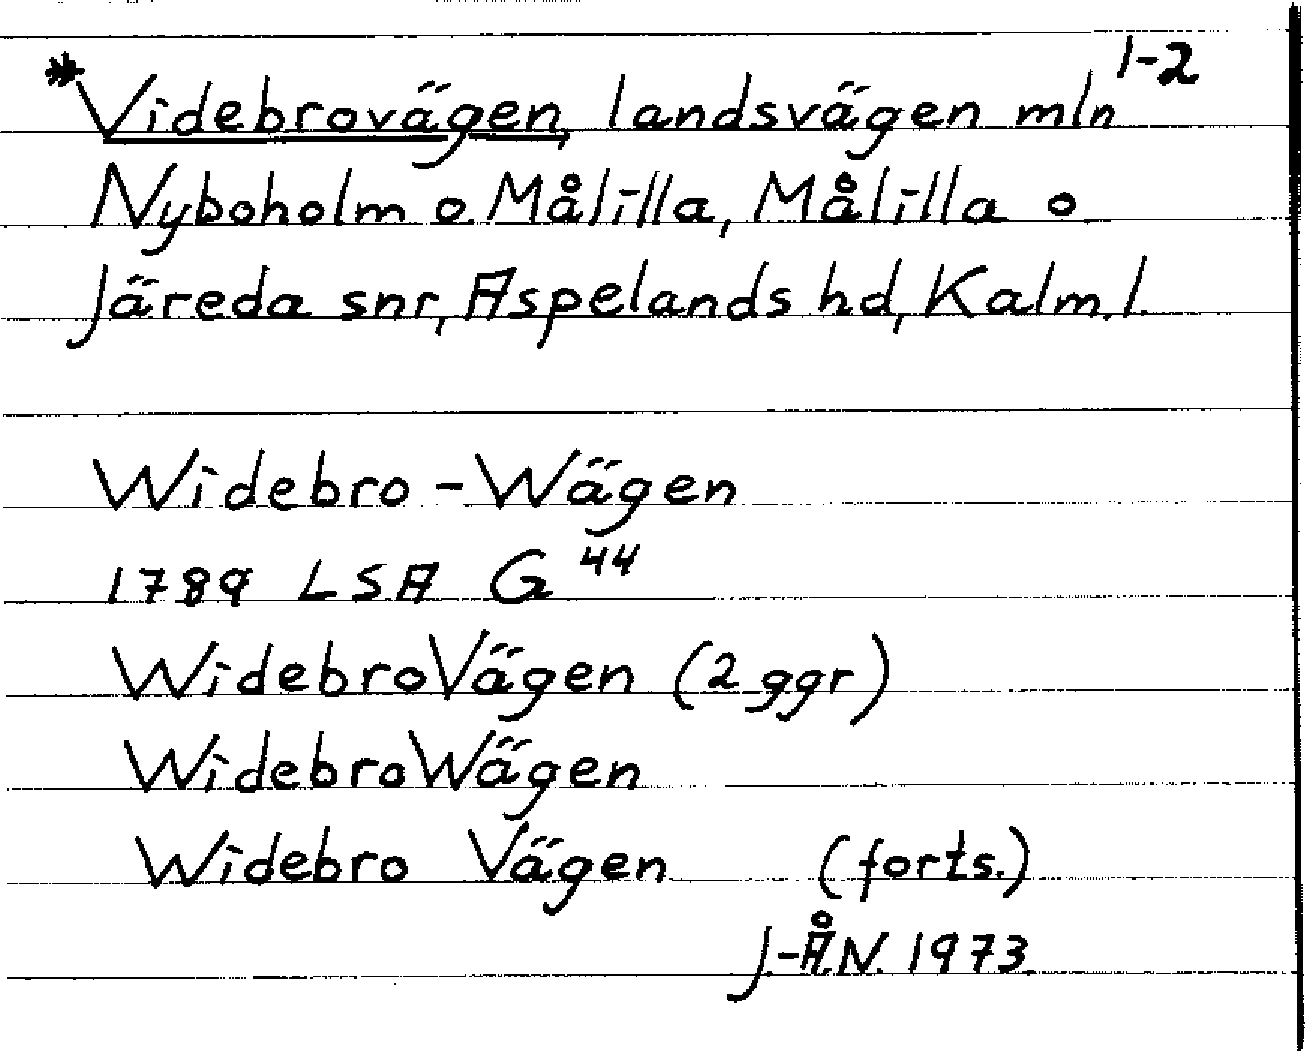 *Videbrovägen, landsvägen mln 1-2
Nyboholm o. Målilla, Målilla o
Järeda snr, Aspelands hd, Kalm. l.
Widebro - Wägen
1789 LSA G 44
WidebroVägen (2 ggr)
WidebroWägen
Widebro Vägen (forts.)
J.-Å.N. 1973